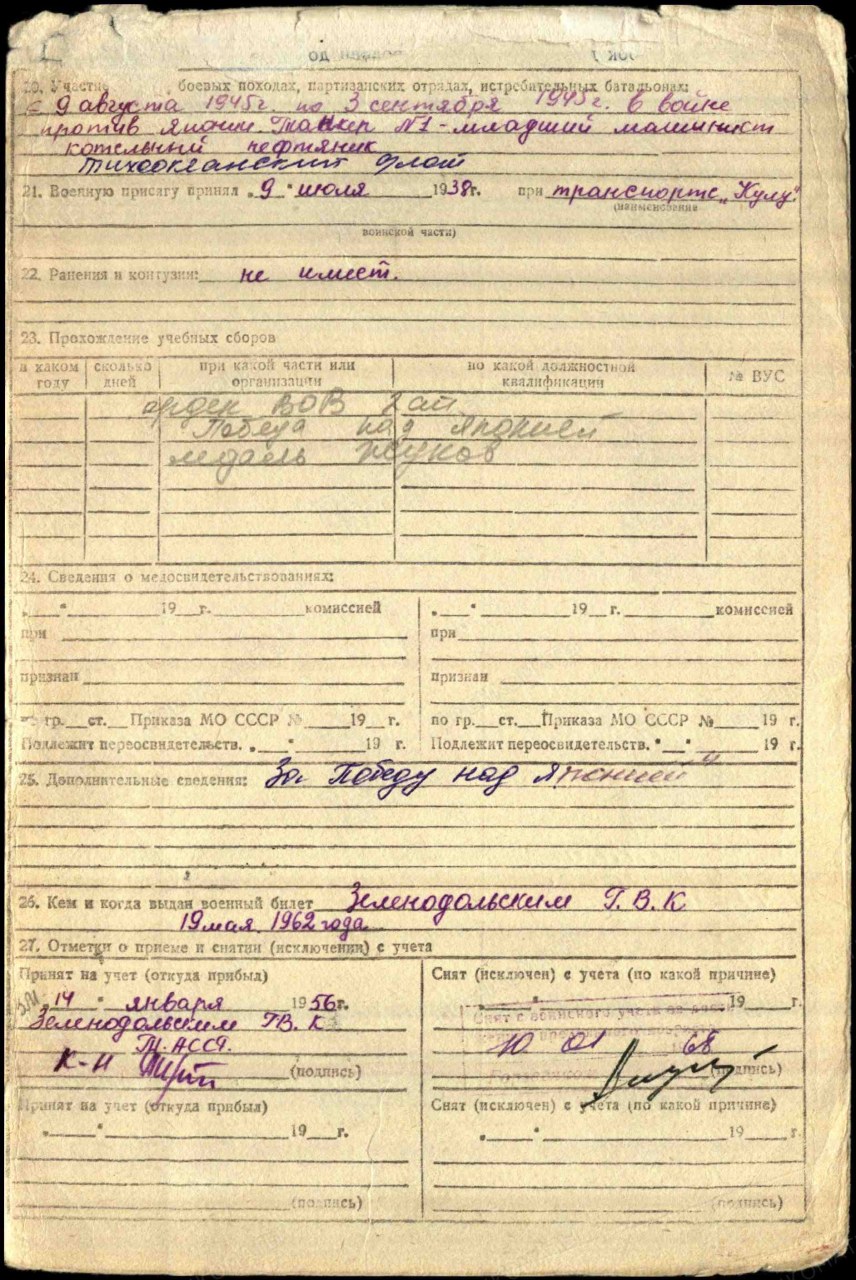 20. Участие боевых походах, партизанских отрядах, истребительных батальонах:
с 9 августа 1945г. по 3 сентября 1945г. в войне
против Японии. Танкер №1 - младший машинист
котельный нефтяник
Тихоокеанский флот
21. Военную присягу принял „9“ июля 1938г. при транспорте „Кулу“.
(наименование
воинской части)
22. Ранения и контузии: не имеет.
23. Прохождение учебных сборов
в каком году | сколько дней | при какой части или организации | по какой должностной квалификации | № ВУС
орден ВОВ 2 ст
Победа над Японией
медаль Жуков
24. Сведения о медосвидетельствованиях:
„__“ 19__г. комиссией
при
признан
по гр.__ст.__Приказа МО СССР № 19__г.
Подлежит переосвидетельств. „__“ 19 г.
„__“ 19__г. комиссией
при
признан
по гр.__ст.__Приказа МО СССР № 19 г.
Подлежит переосвидетельств. „__“ 19 г.
25. Дополнительные сведения: За Победу над Японией“
26. Кем и когда выдан военный билет Зеленодольским Г.В.К
19 мая 1962 года
27. Отметки о приеме и снятии (исключении) с учета
Принят на учет (откуда прибыл)
„14“ января 1956г.
Зеленодольским ГВ. К
Т.АССР.
К-н (подпись)
Снят (исключен) с учета (по какой причине)
„__“ 19__г.
Снят с воинского учета
10 01 68
(подпись)
Принят на учет (откуда прибыл)
„__“ 19__г.
(подпись)
Снят (исключен) с учета (по какой причине)
„__“ 19__г.
(подпись)